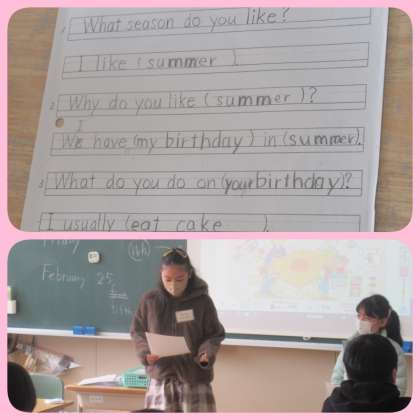 1. What season do you like?
I like (summer).
2. Why do you like (summer)?
I
We have (my birthday) in (summer).
3. What do you do on (your birthday)?
I usually (eat cake ).
Friday
February 25